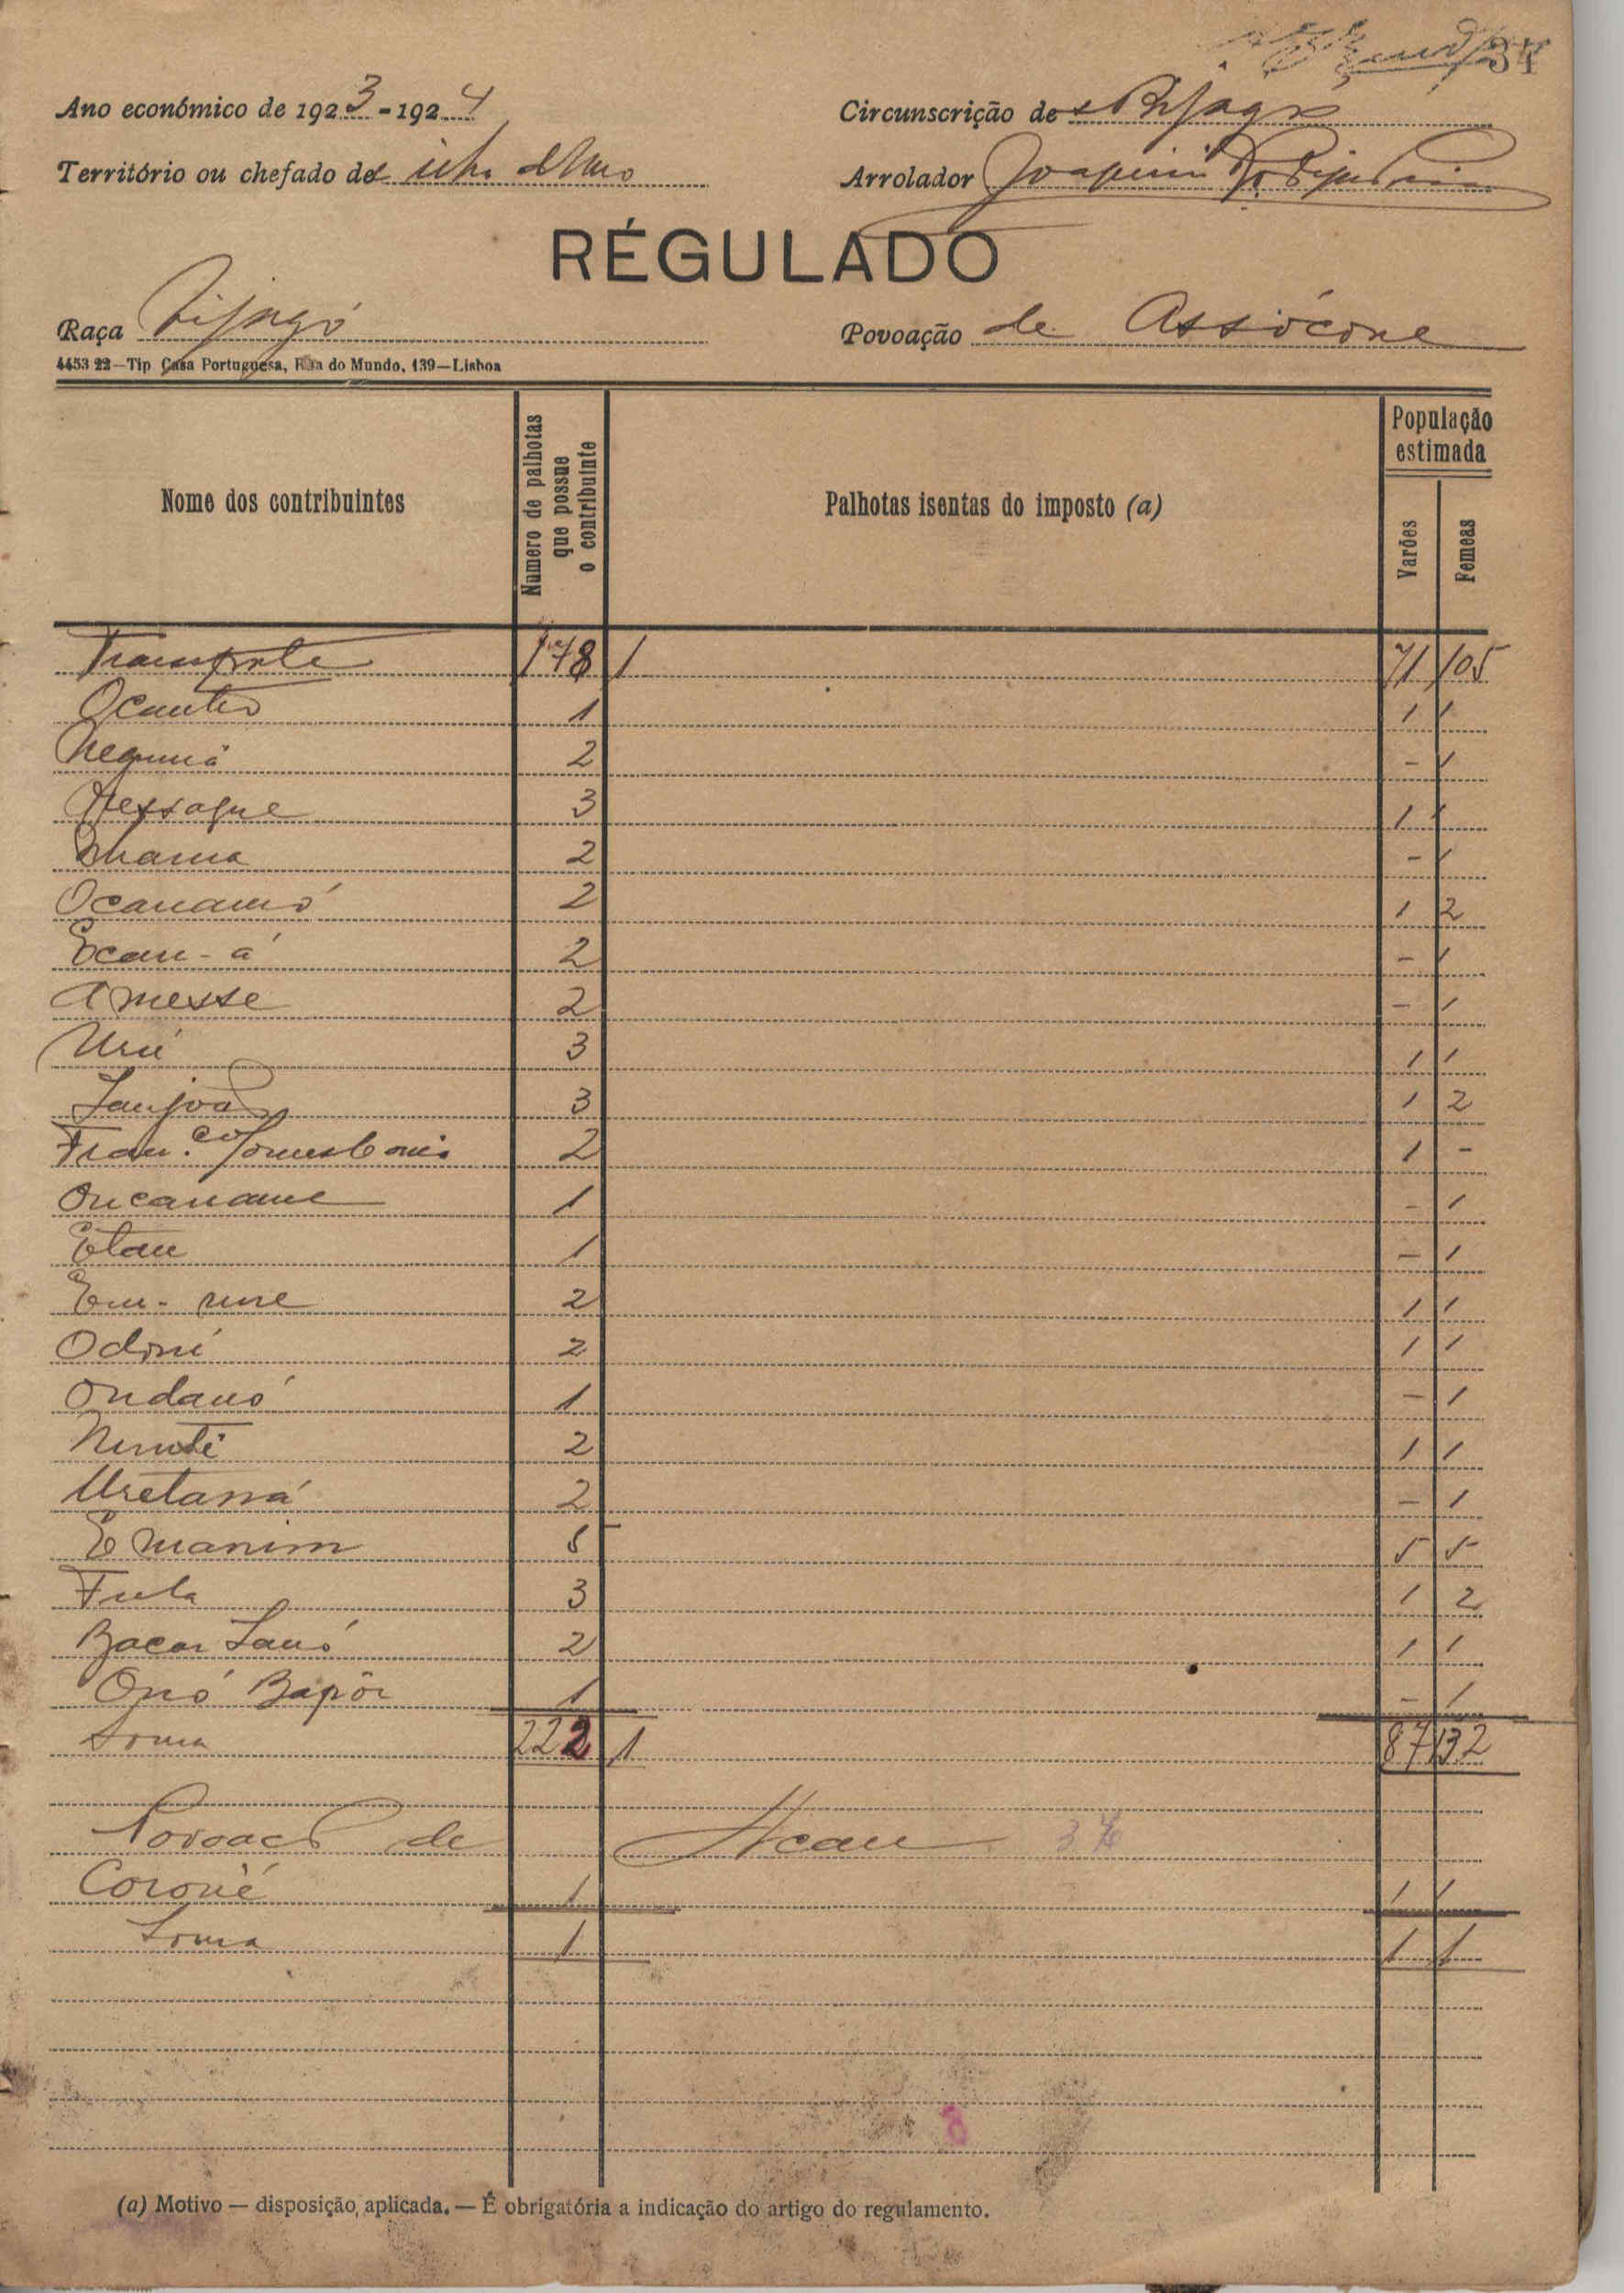 37
Ano económico de 1923-1924
Circunscrição de Bijagós
Território ou chefado de
Arrolador Joaquim
RÉGULADO
Raça Bijagó
Povoação de Assócone
4453 22—Tip Casa Portuguesa, Rua do Mundo, 139—Lisboa
Nome dos contribuintes
Numero de palhotas que possue o contribuinte
Palhotas isentas do imposto (a)
População estimada
Varões
Femeas
Transporte 178 1 71 105
Ocanto 1 1 1
2 - 1
Nessaque 3 1 1
2 - 1
Ocanamó 2 1 2
Ecan-á 2 - 1
Amesse 2 - 1
3 1 1
3 1 2
Fran.co Gomes 2 1 -
Oncaname 1 - 1
Etan 1 - 1
2 1 1
Odoné 2 1 1
Ondanó 1 - 1
2 1 1
2 - 1
Emanim 5 5 5
Fula 3 1 2
Bacar Sanó 2 1 1
Onó Bapôr 1 - 1
Soma 222 1 87 132
Povoação de Acan
Coroné 1 1 1
Soma 1 1 1
8
(a) Motivo — disposição aplicada. — É obrigatória a indicação do artigo do regulamento.